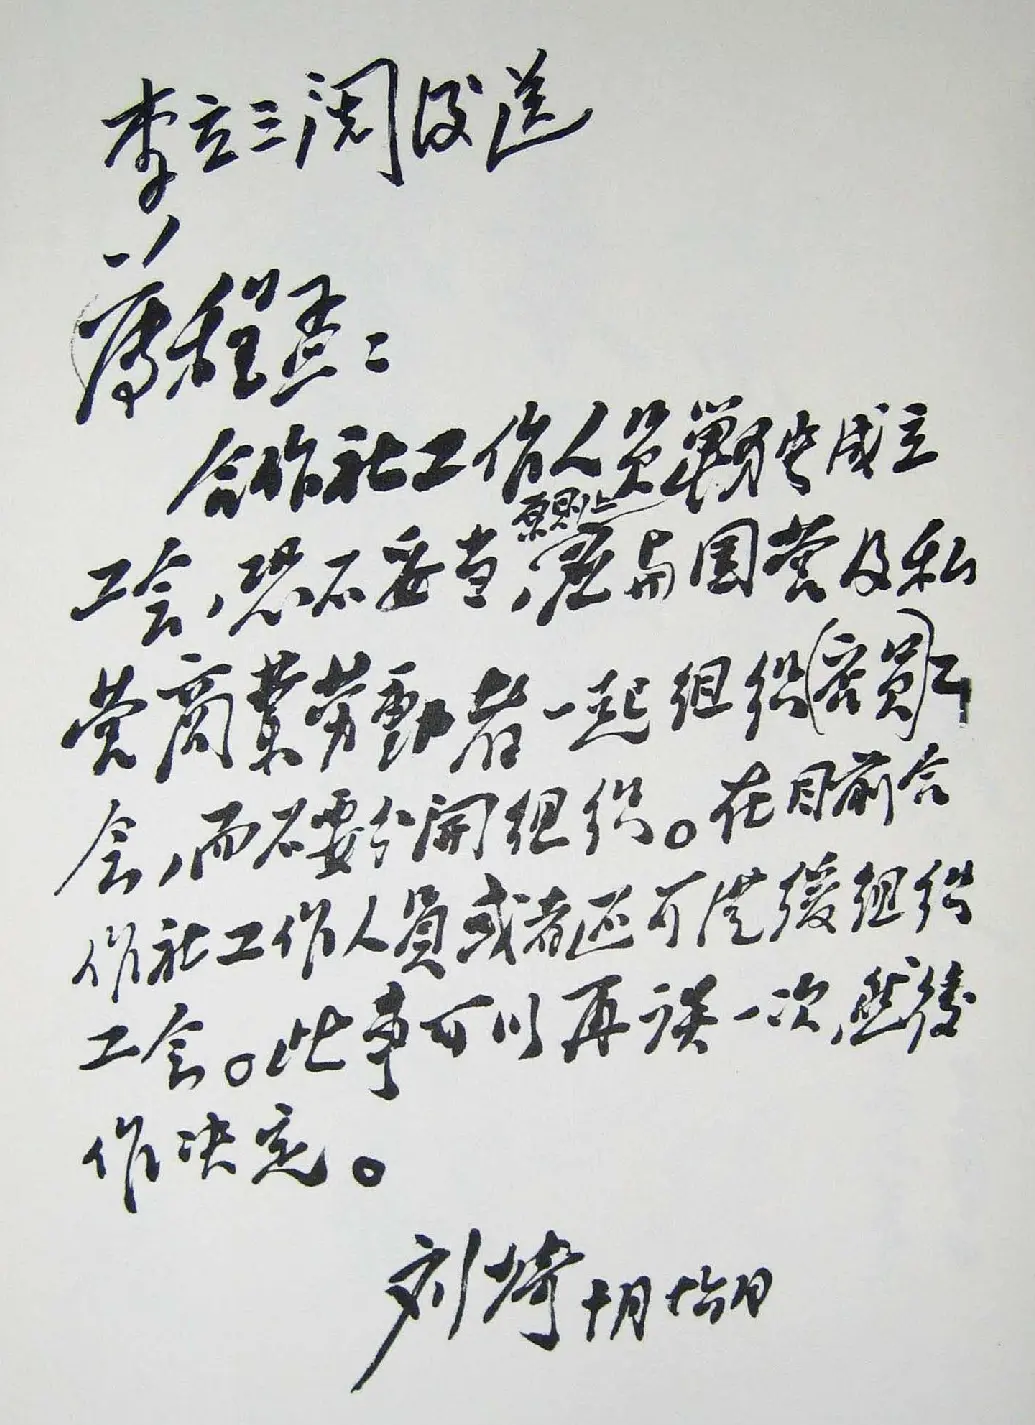 李立三阅后送
薄程孟：
合作社工作人员单独成立
工会，恐不妥当，原则上应与国营及私
营商业劳動者一起组织（店员）工
会，而不要分開组织。在目前合
作社工作人員或者还可從緩组织
工会。此事可以再谈一次，然後
作决定。
刘 十月十六日